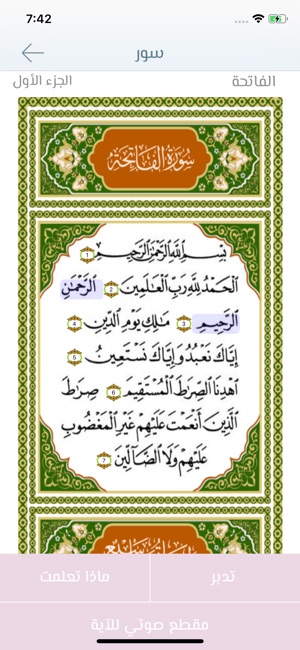 7:42
سور
الفاتحة
الجزء الأول
سُورَةُ الفَاتِحَةِ
بِسْمِ اللَّهِ الرَّحْمَٰنِ الرَّحِيمِ ١
الْحَمْدُ لِلَّهِ رَبِّ الْعَالَمِينَ ٢ الرَّحْمَٰنِ
الرَّحِيمِ ٣ مَالِكِ يَوْمِ الدِّينِ ٤
إِيَّاكَ نَعْبُدُ وَإِيَّاكَ نَسْتَعِينُ ٥
اهْدِنَا الصِّرَاطَ الْمُسْتَقِيمَ ٦ صِرَاطَ
الَّذِينَ أَنْعَمْتَ عَلَيْهِمْ غَيْرِ الْمَغْضُوبِ
عَلَيْهِمْ وَلَا الضَّالِّينَ ٧
تدبر
ماذا تعلمت
مقطع صوتي للآية